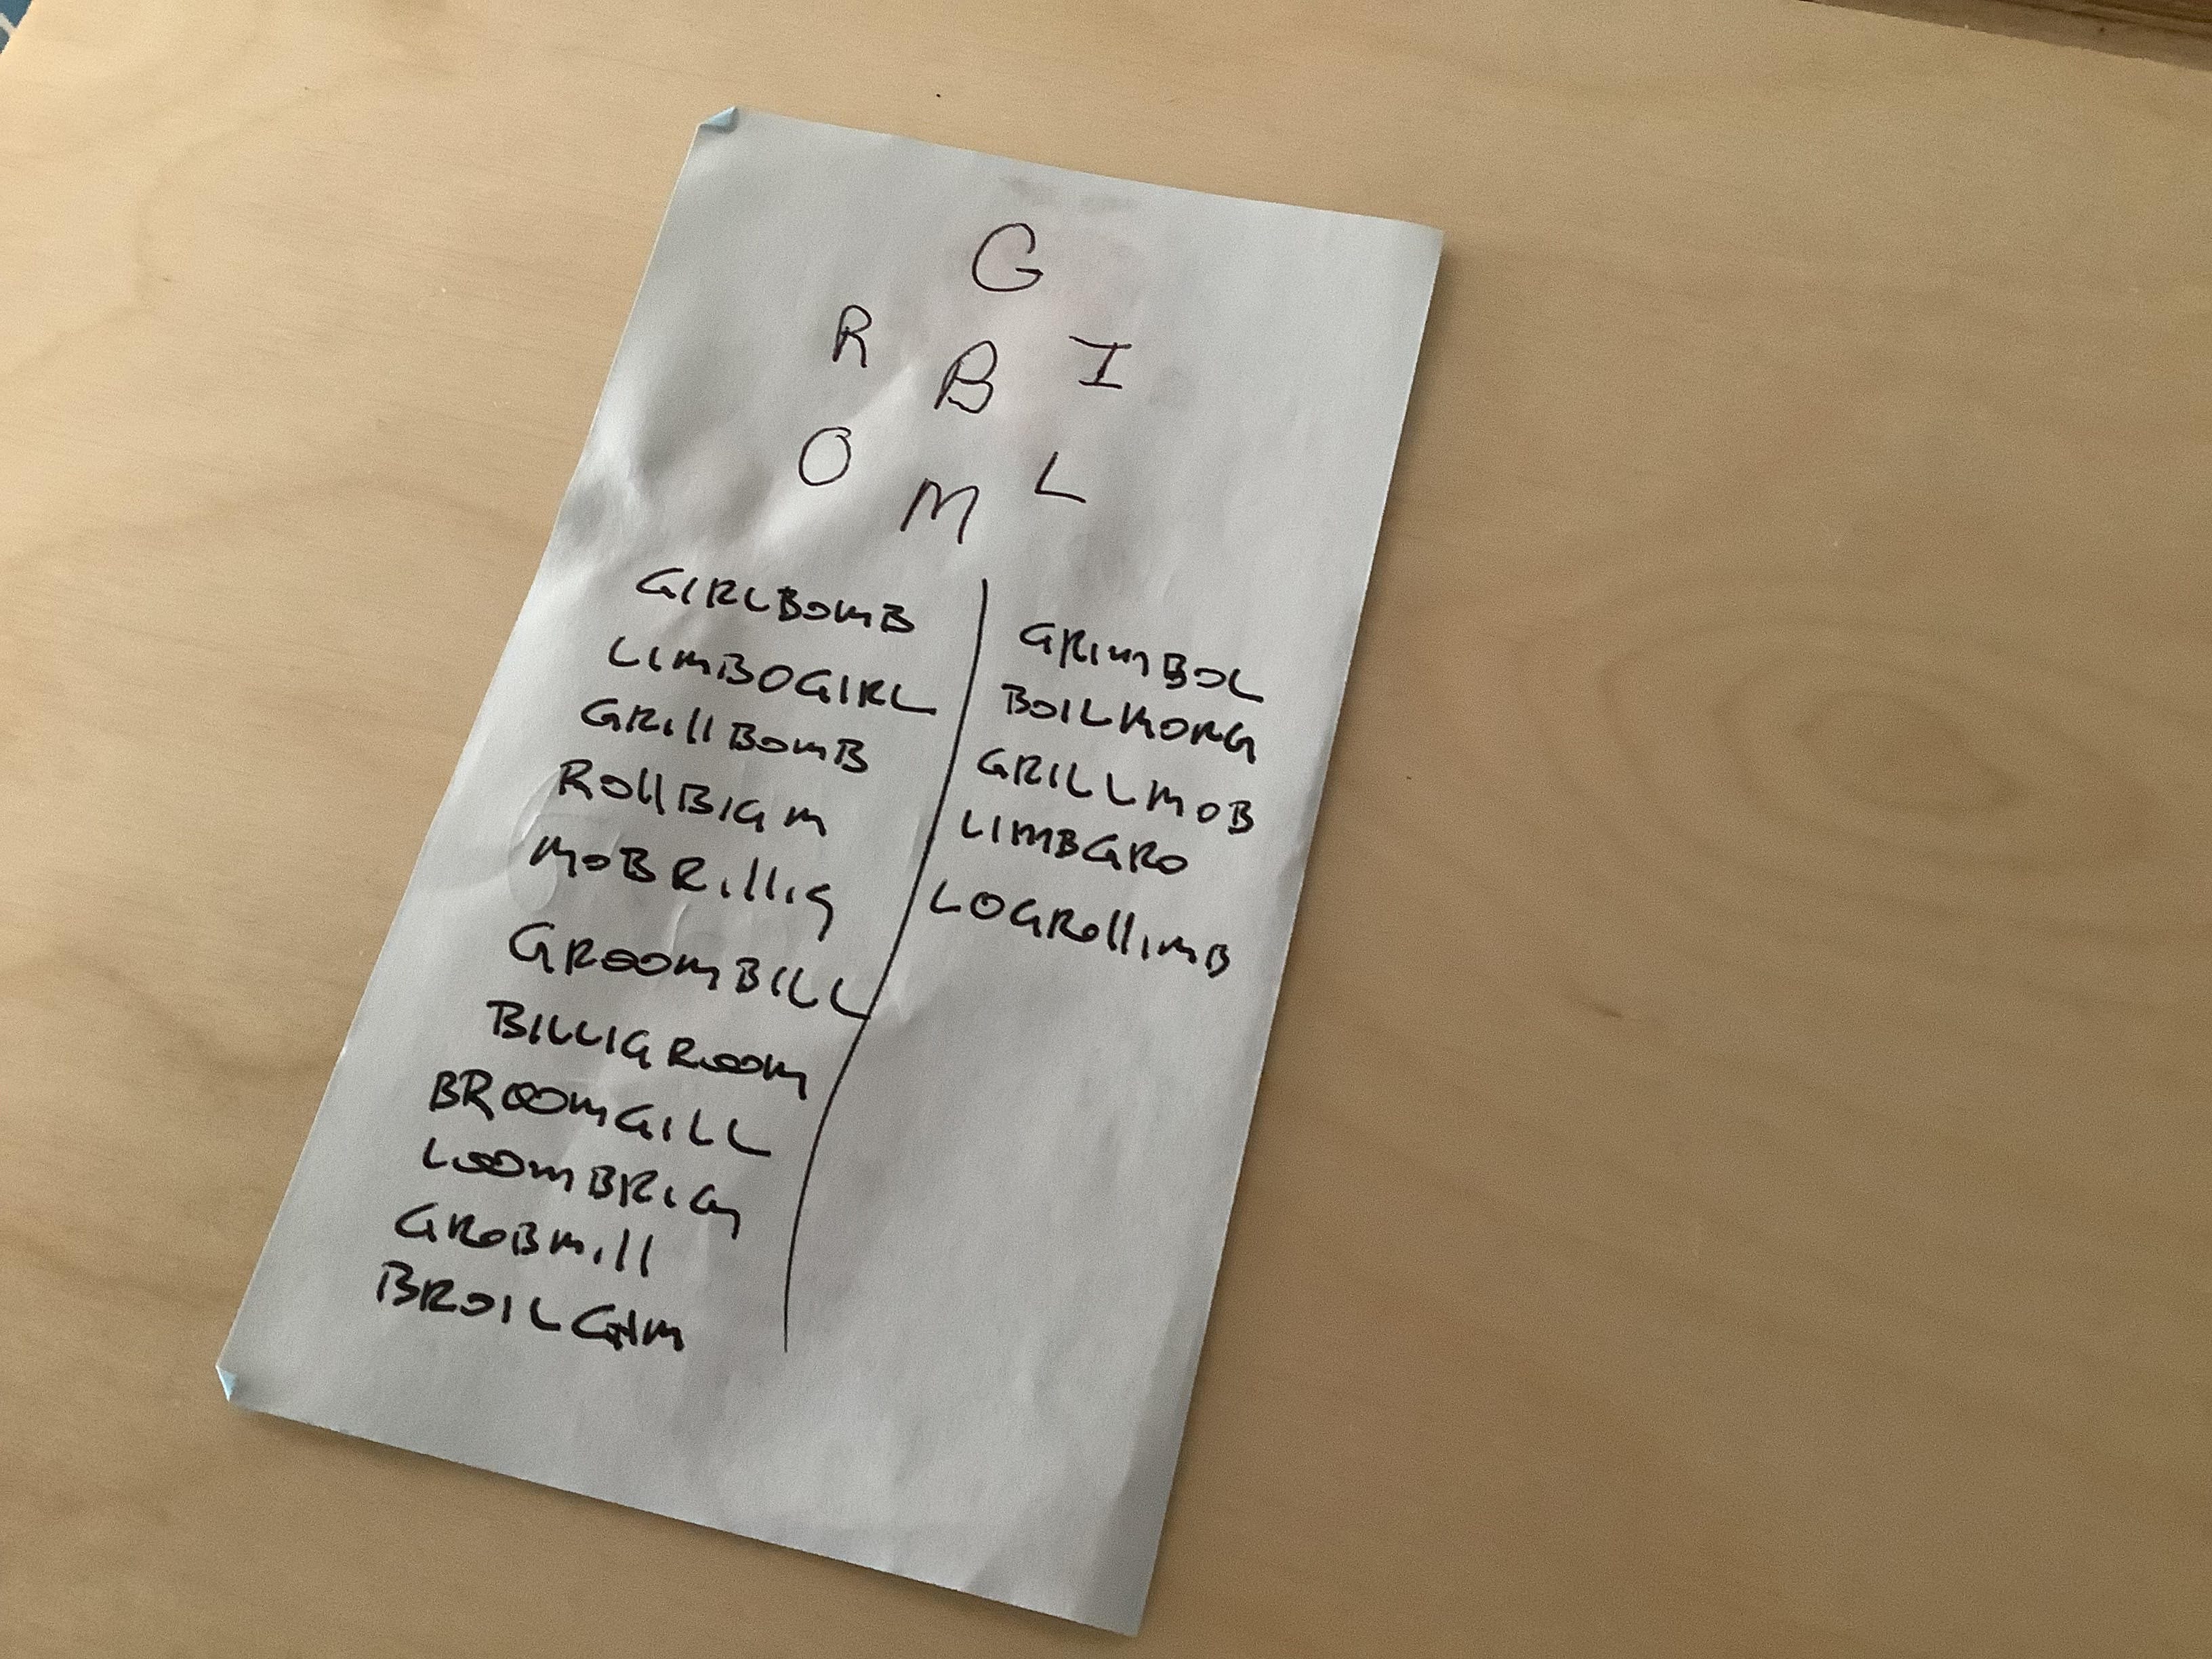 G
R B I
O M L
GIRLBOMB
LIMBOGIRL
GRillBOMB
ROllBIGM
MOBRilliG
GROOMBILL
BILLIGROOM
BROOMGILL
LOOMBRIG
GROBMill
BROILGIM
GRIMBOL
BOILMORG
GRILLMOB
LIMBGRO
LOGROllIMB